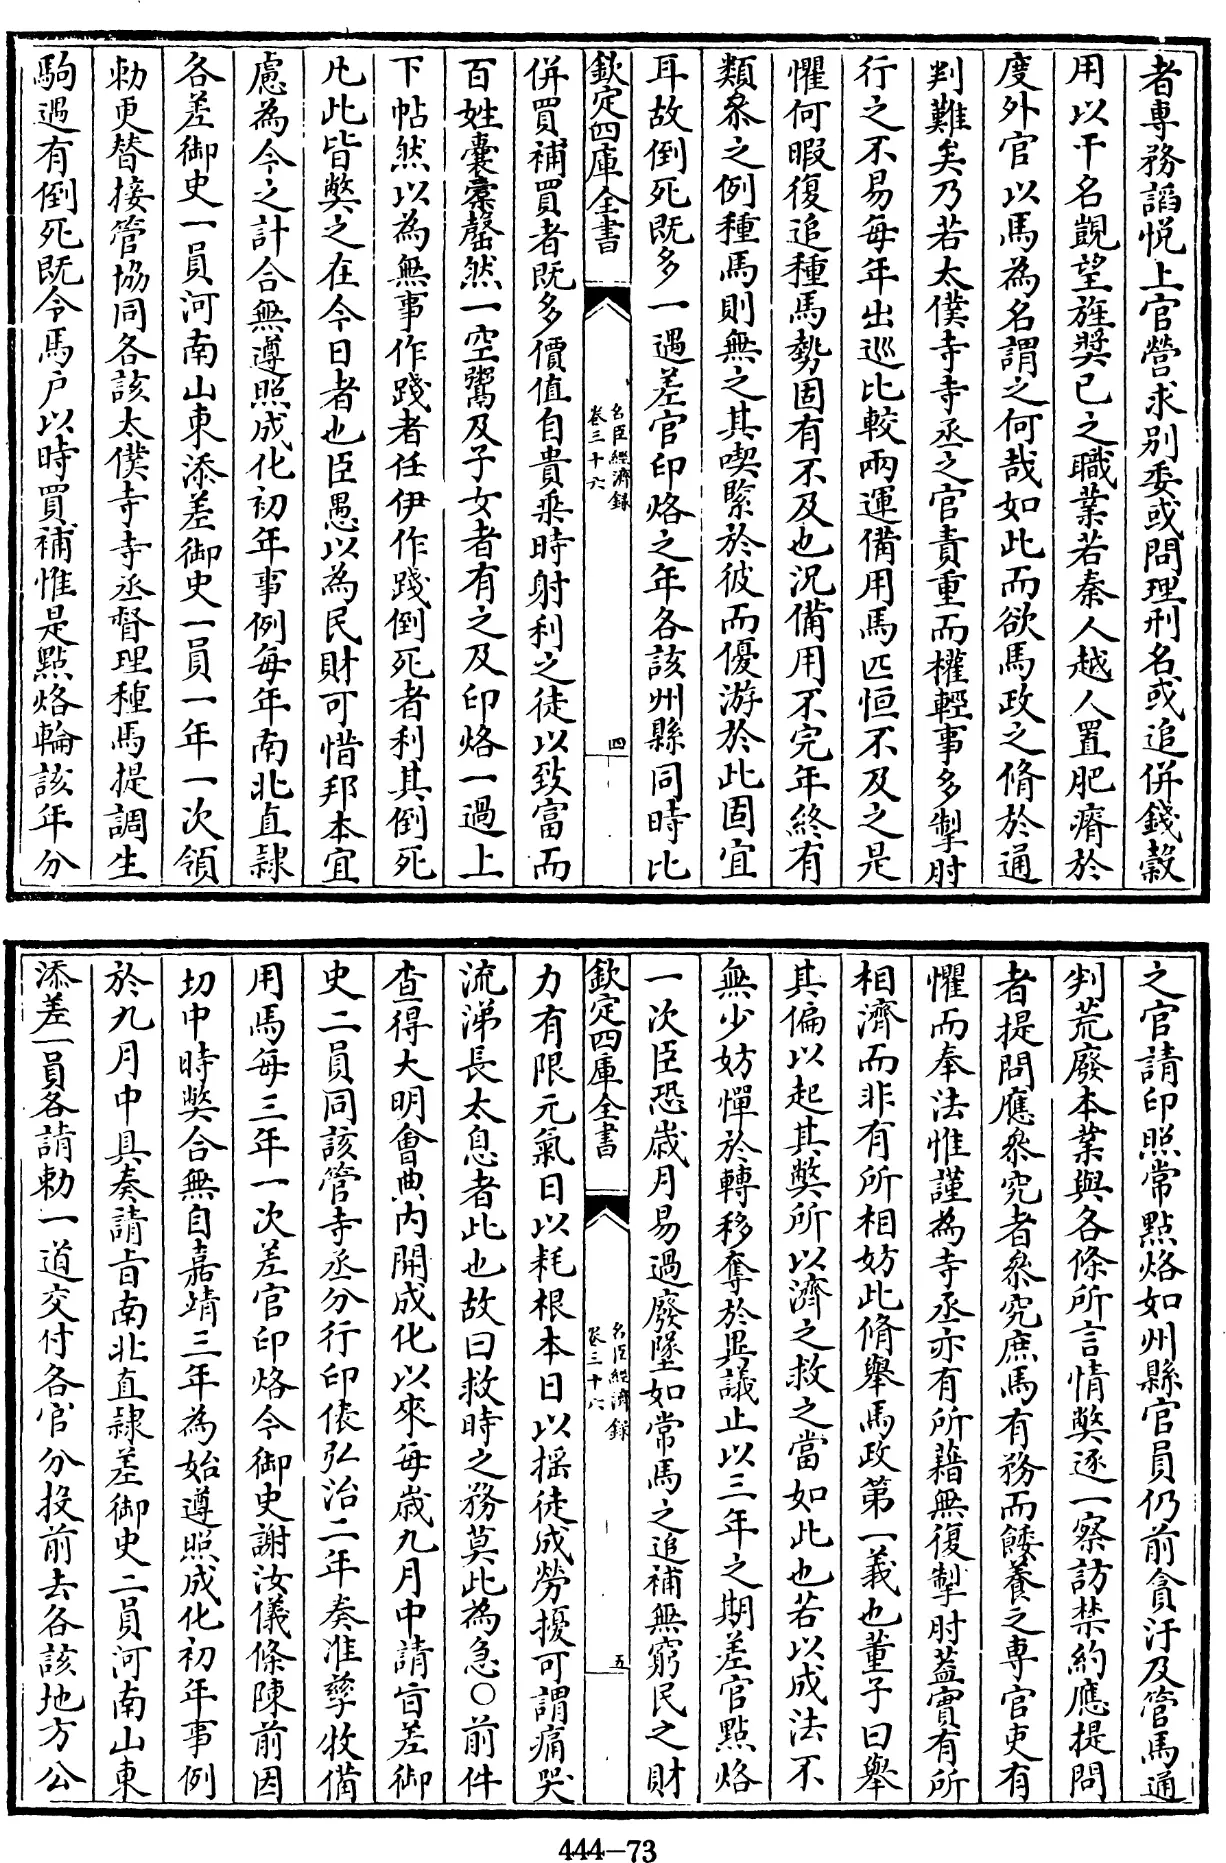 者專務諂悅上官營求別委或問理刑名或追併錢糓
用以干名覬望旌奬已之職業若秦人越人置肥瘠於
度外官以馬為名謂之何哉如此而欲馬政之脩於通
判難矣乃若太僕寺寺丞之官責重而權輕事多掣肘
行之不易每年出巡比較兩運備用馬匹恒不及之是
懼何暇復追種馬勢固有不及也況備用不完年終有
類叅之例種馬則無之其喫緊於彼而優游於此固宜
耳故倒死既多一遇差官印烙之年各該州縣同時比
欽定四庫全書
名臣經濟録
卷三十六
四
併買補買者既多價值自貴乗時射利之徒以致富而
百姓囊橐罄然一空鬻及子女者有之及印烙一過上
下帖然以為無事作踐者任伊作踐倒死者利其倒死
凡此皆弊之在今日者也臣愚以為民財可惜邦本宜
慮為今之計合無遵照成化初年事例每年南北直隷
各差御史一員河南山東添差御史一員一年一次領
勅更替接管協同各該太僕寺寺丞督理種馬提調生
駒遇有倒死既令馬户以時買補惟是點烙輪該年分
之官請印照常點烙如州縣官員仍前貪汙及管馬通
判荒廢本業與各條所言情弊逐一察訪禁約應提問
者提問應叅究者叅究庶馬有務而餧養之専官吏有
懼而奉法惟謹為寺丞亦有所藉無復掣肘蓋實有所
相濟而非有所相妨此脩舉馬政第一義也董子曰舉
其偏以起其弊所以濟之救之當如此也若以成法不
無少妨憚於轉移奪於異議止以三年之期差官點烙
一次臣恐歲月易過廢墜如常馬之追補無窮民之財
欽定四庫全書
名臣經濟録
卷三十六
五
力有限元氣日以耗根本日以揺徒成勞擾可謂痛哭
流涕長太息者此也故曰救時之務莫此為急○前件
查得大明會典内開成化以來每歲九月中請㫖差御
史二員同該管寺丞分行印俵弘治二年奏准孳牧備
用馬每三年一次差官印烙今御史謝汝儀條陳前因
切中時弊合無自嘉靖三年為始遵照成化初年事例
於九月中具奏請㫖南北直隷差御史二員河南山東
添差一員各請勅一道交付各官分投前去各該地方公
444-73